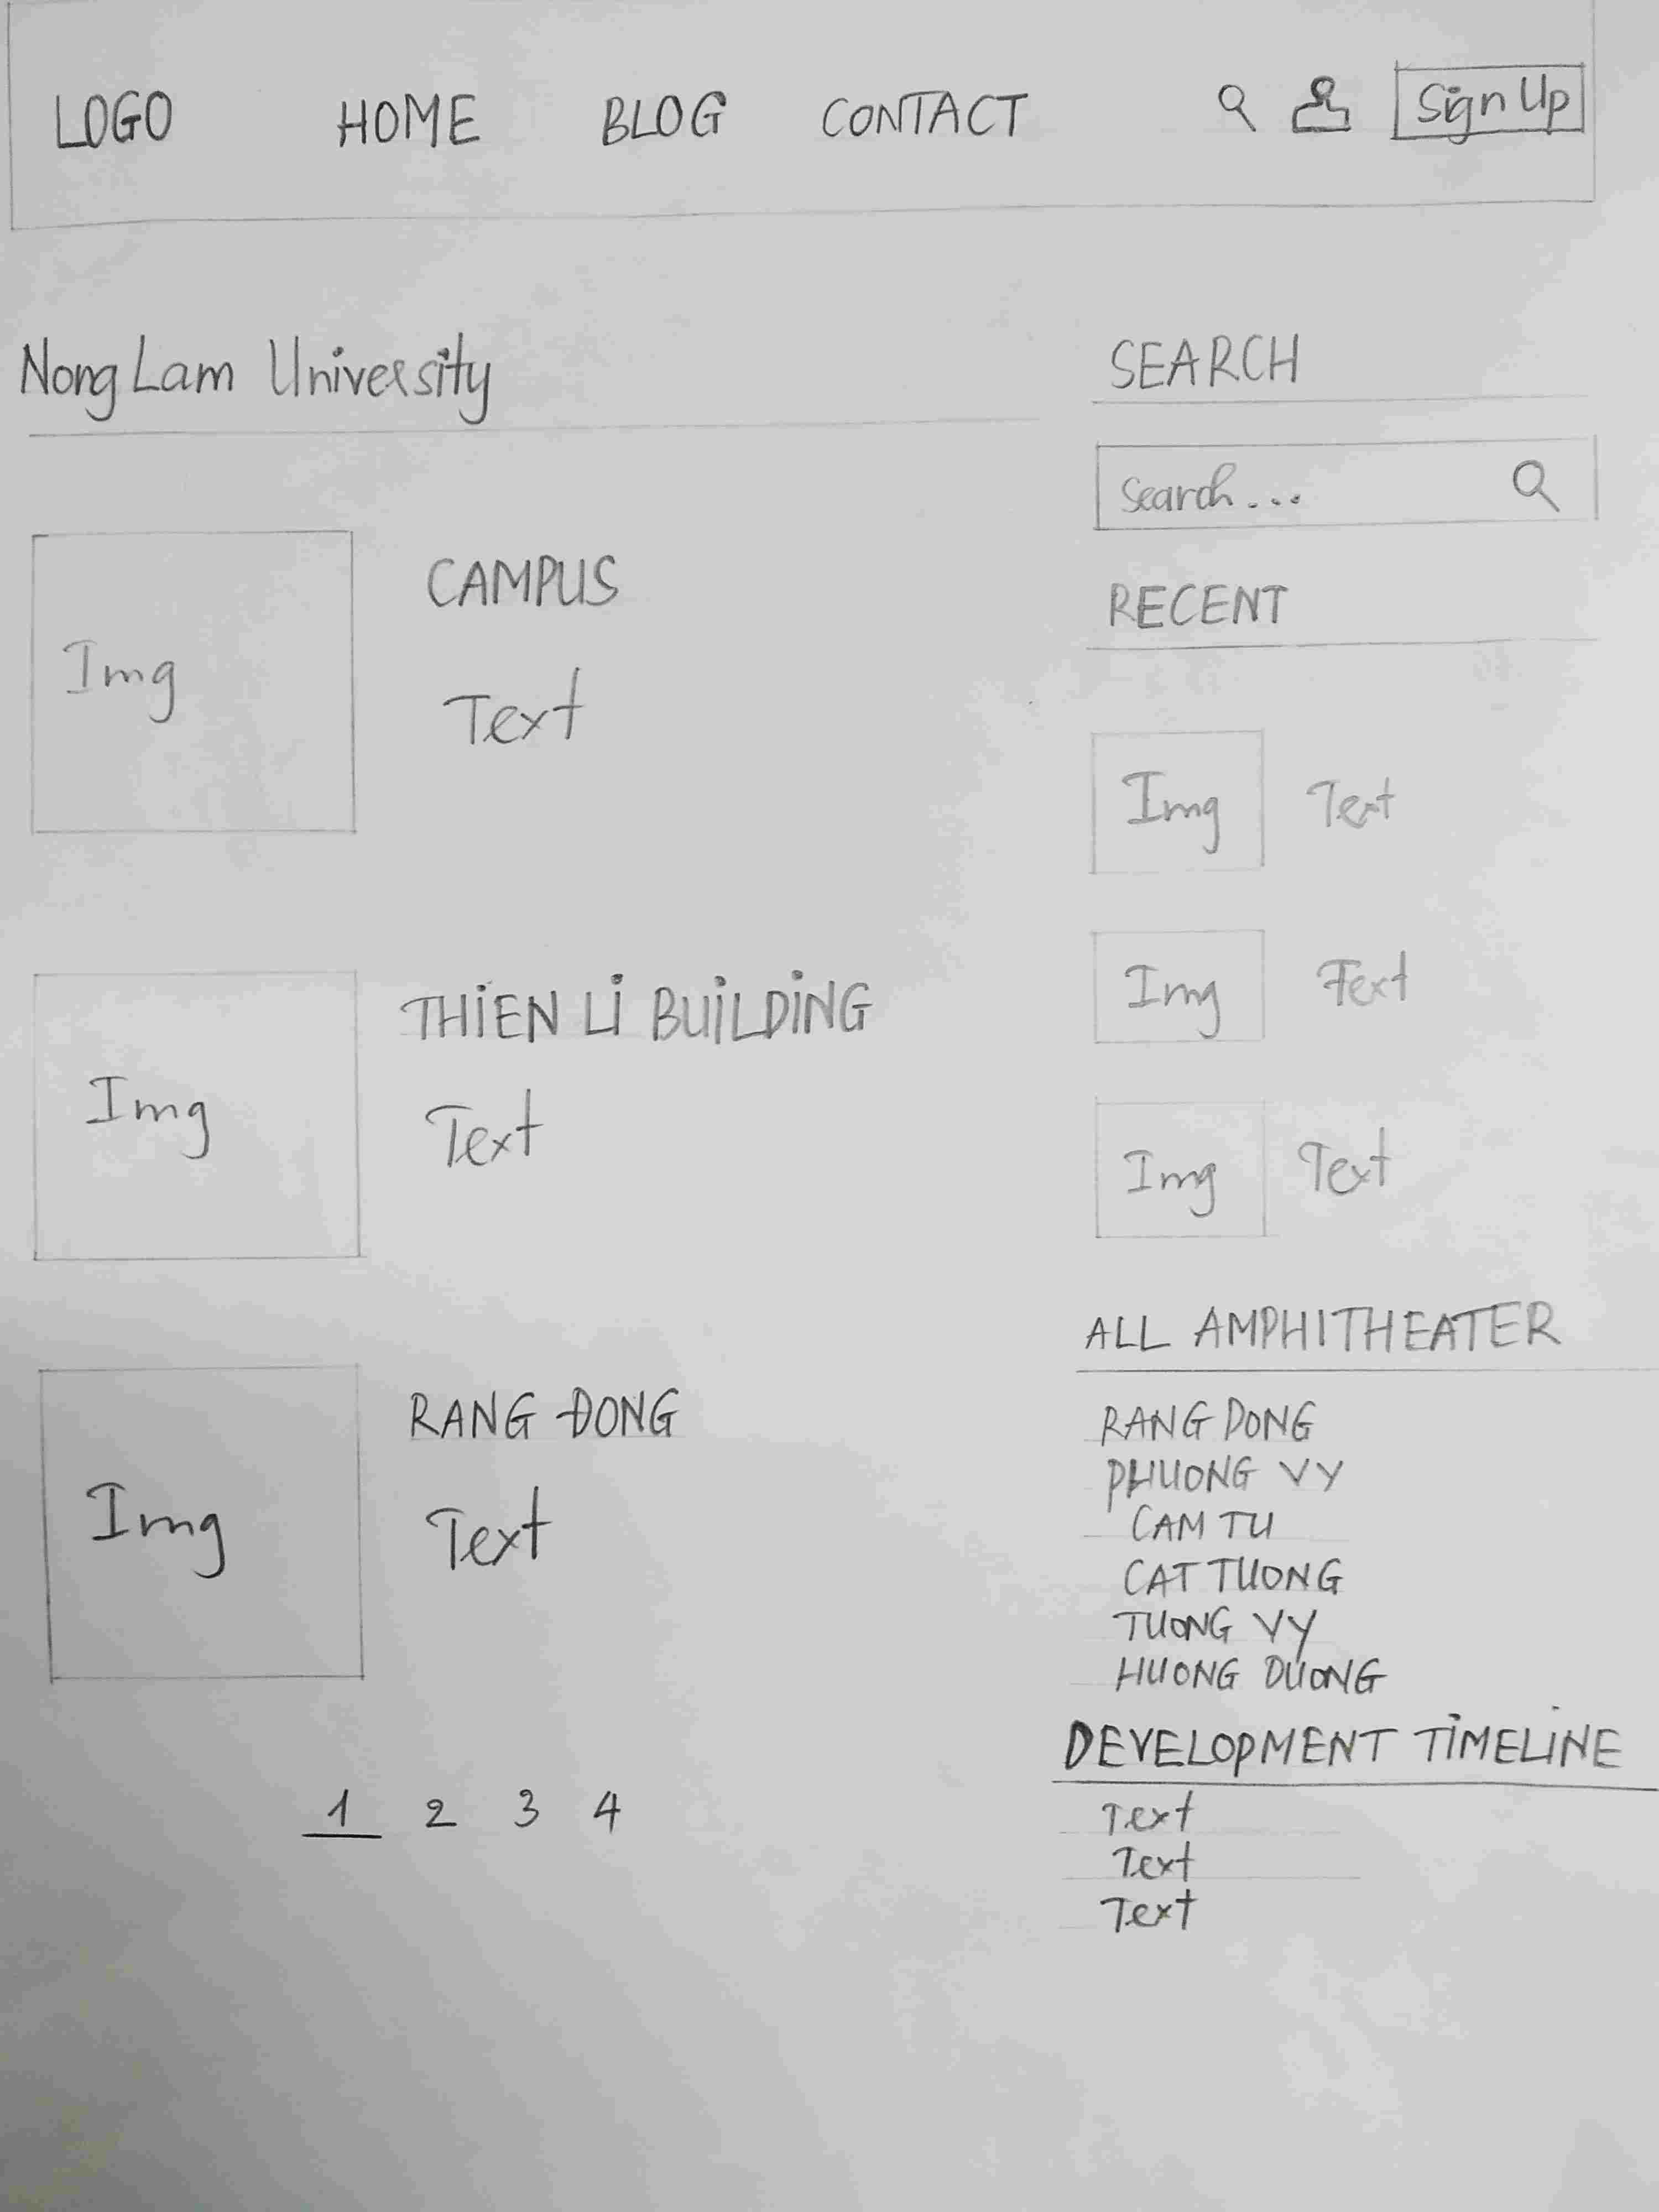 LOGO HOME BLOG CONTACT Sign Up
Nong Lam University
CAMPUS
Img
Text
THiEN Li BUiLDiNG
Img
Text
RANG ĐONG
Img
Text
1 2 3 4
SEARCH
Search...
RECENT
Img Text
Img Text
Img Text
ALL AMPHITHEATER
RANG DONG
PHUONG VY
CAM TU
CAT TUONG
TUONG VY
HUONG DUONG
DEVELOPMENT TiMELiNE
Text
Text
Text